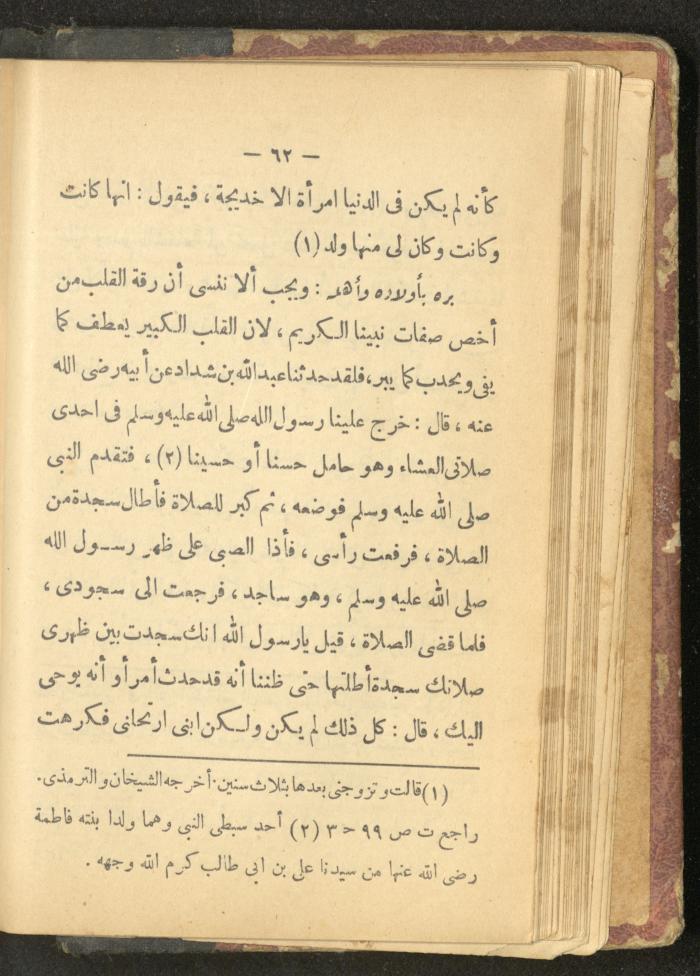 — ٦٢ —
كأنه لم يكن فى الدنيا امرأة الا خديجة ، فيقول : انها كانت
وكانت وكان لى منها ولد (١)
بره بأولاده وأهله : ويجب ألا ننسى أن رقة القلب من
أخص صفات نبينا الكريم ، لان القلب الكبير يعطف كما
يفى ويحدب كما يبر ، فلقد حدثنا عبد الله بن شداد عن أبيه رضى الله
عنه ، قال : خرج علينا رسول الله صلى الله عليه وسلم فى احدى
صلاتى العشاء وهو حامل حسنا أو حسينا (٢) ، فتقدم النبى
صلى الله عليه وسلم فوضعه ، ثم كبر للصلاة فأطال سجدة من
الصلاة ، فرفعت رأسى ، فأذا الصبى على ظهر رسول الله
صلى الله عليه وسلم ، وهو ساجد ، فرجعت الى سجودى ،
فلما قضى الصلاة ، قيل يارسول الله انك سجدت بين ظهرى
صلاتك سجدة أطلتها حتى ظننا أنه قد حدث أمر أو أنه يوحى
اليك ، قال : كل ذلك لم يكن ولكن ابنى ارتحلنى فكرهت
(١) قالت وتزوجنى بعدها بثلاث سنين . أخرجه الشيخان والترمذى .
راجع ت ص ٩٩ ح ٣ (٢) أحد سبطى النبى وهما ولدا بنته فاطمة
رضى الله عنها من سيدنا على بن ابى طالب كرم الله وجهه .